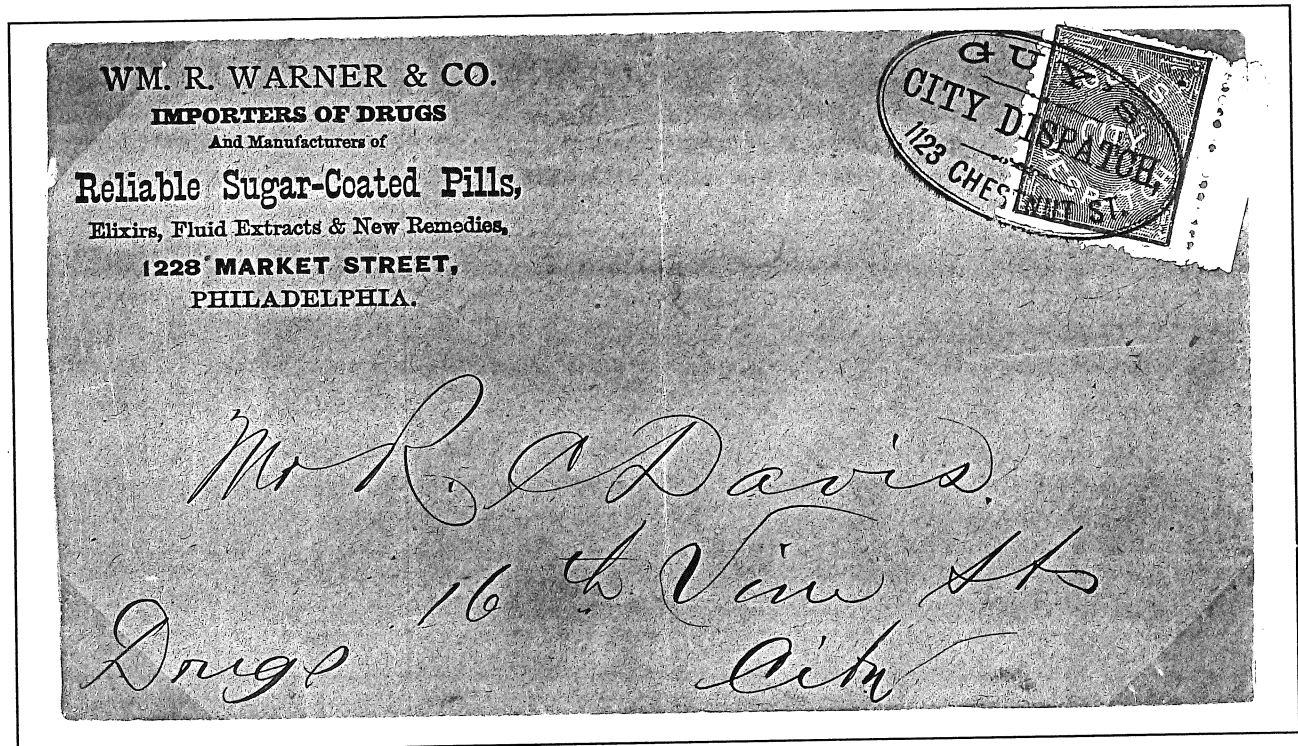 WM. R. WARNER & CO.
IMPORTERS OF DRUGS
And Manufacturers of
Reliable Sugar-Coated Pills,
Elixirs, Fluid Extracts & New Remedies,
1228 MARKET STREET,
PHILADELPHIA.
GUY'S
CITY DISPATCH,
1123 CHESTNUT ST.
GUY'S
CITY
DESPATCH
Mr R. C Davis.
16th Vine Sts
City
Drugs